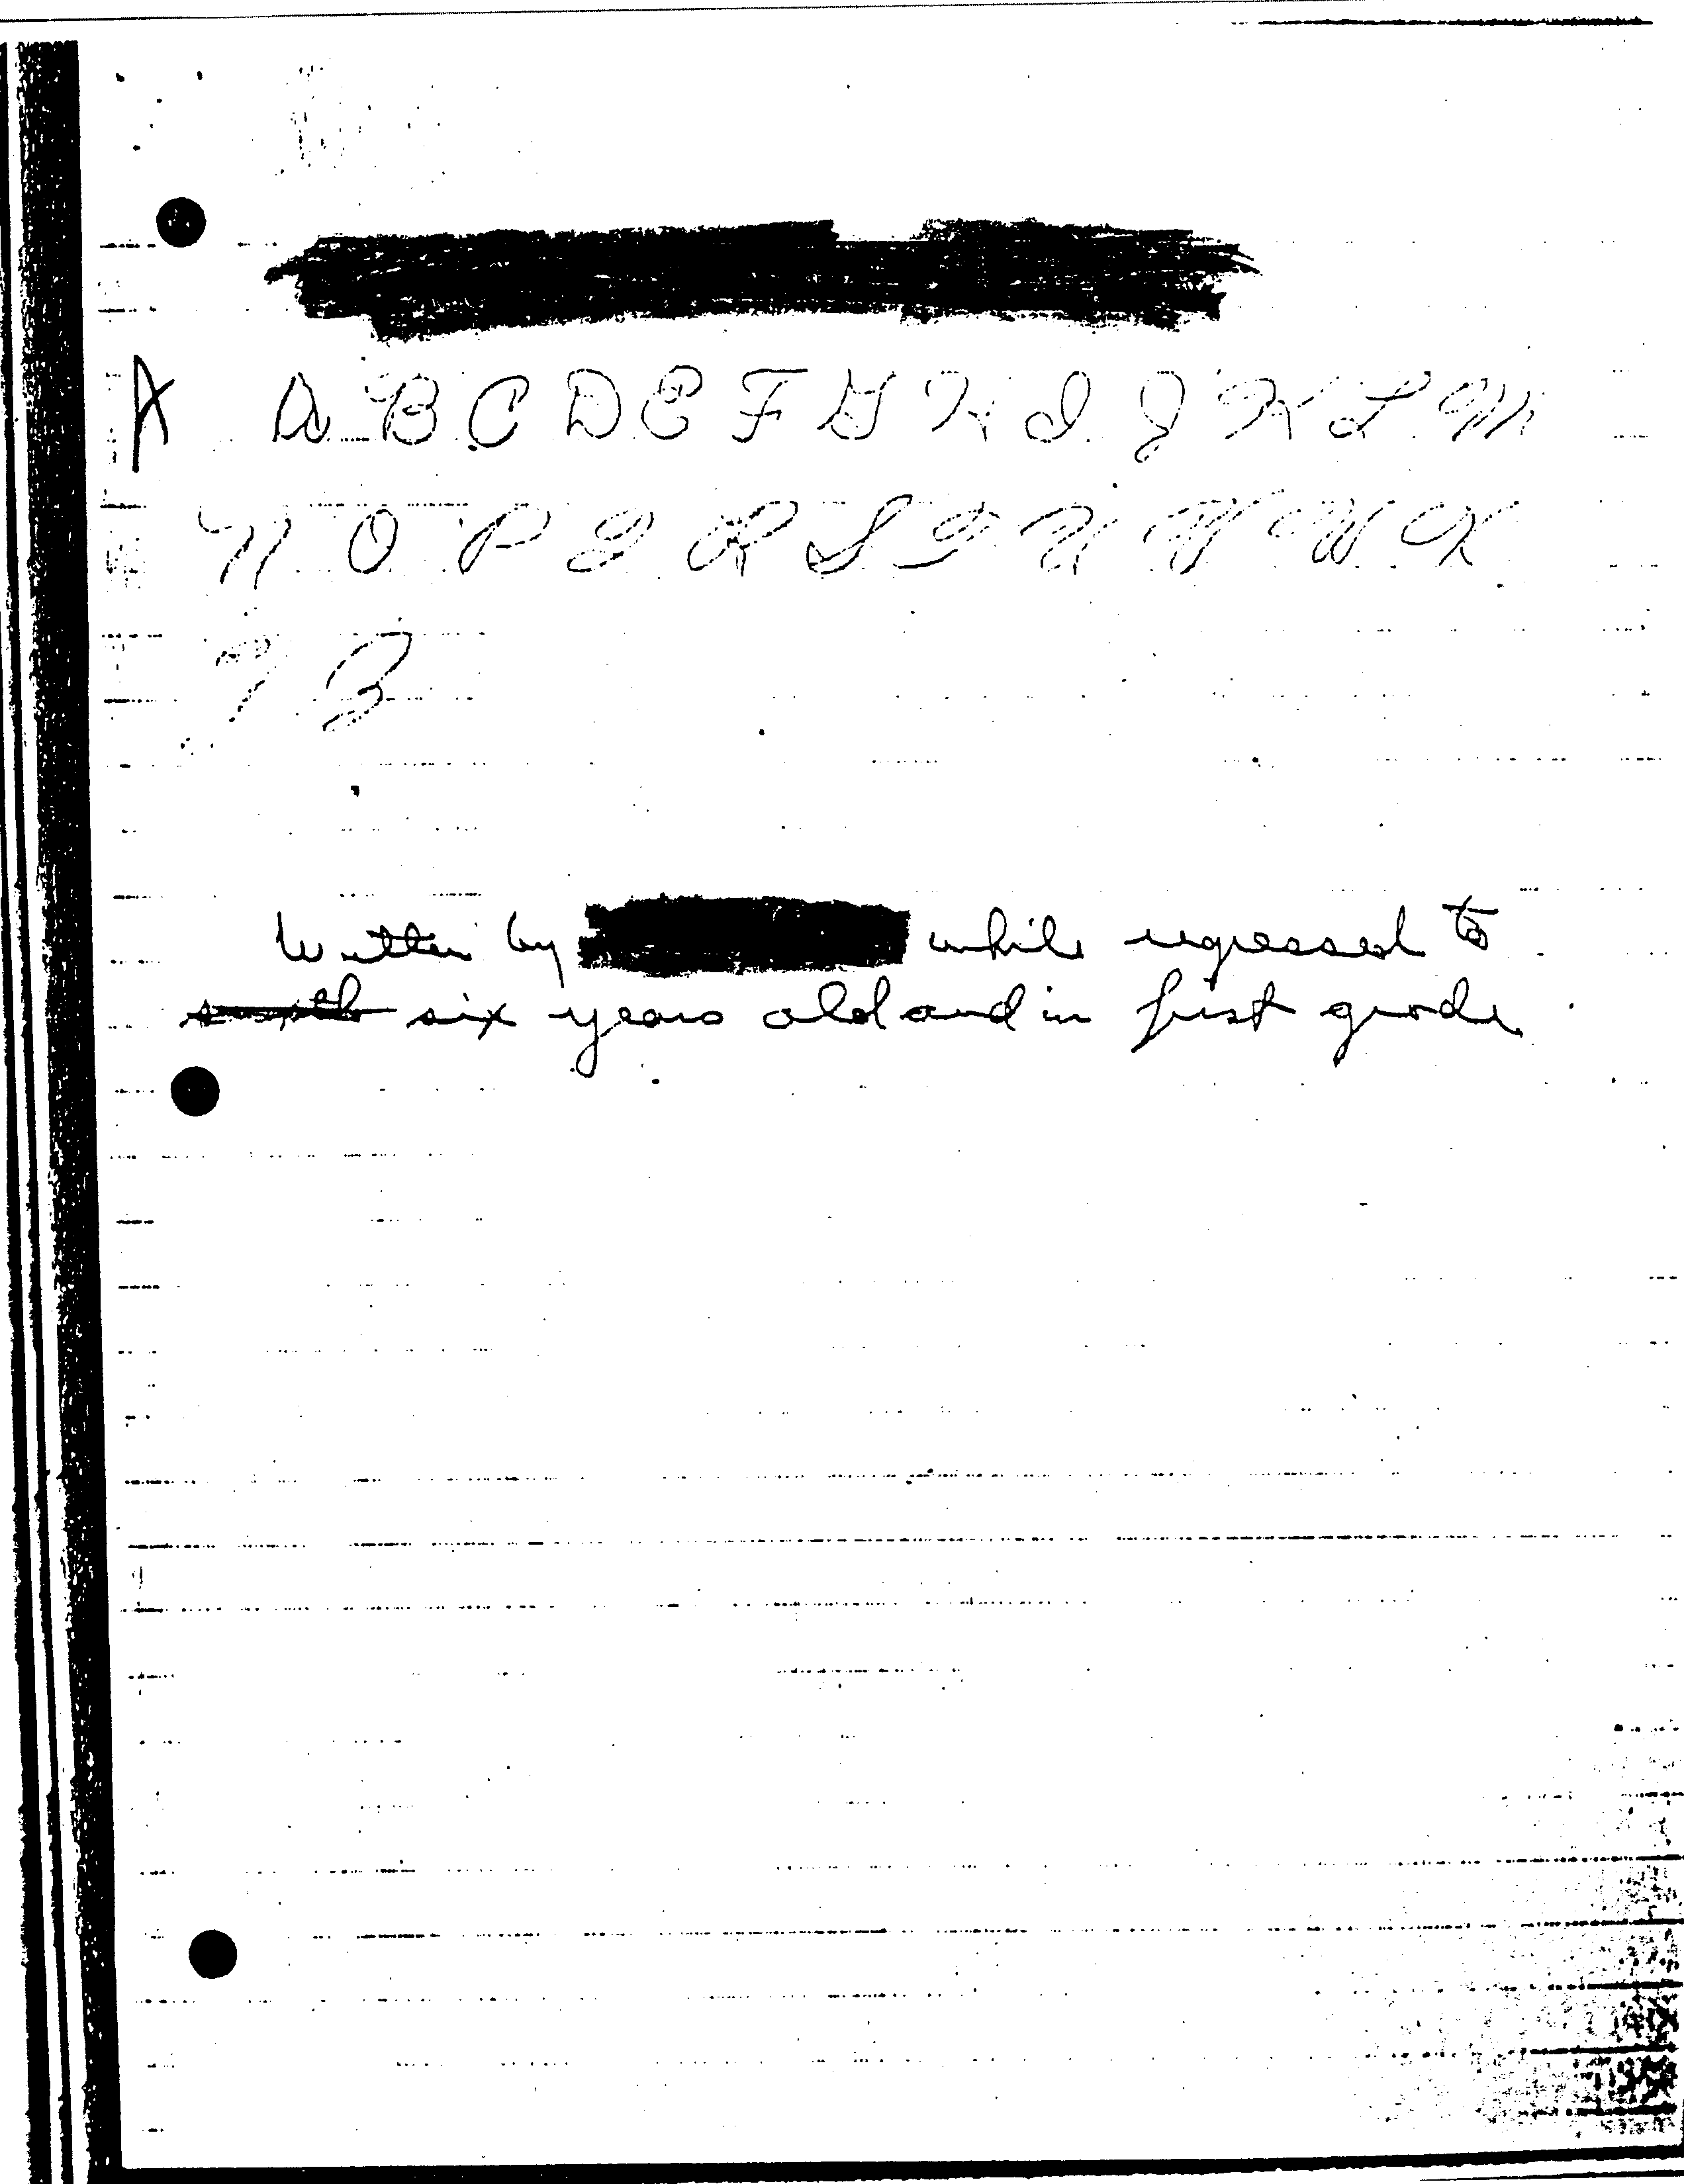 A A B C D E F G H I J K L M
N O P Q R S T U V W X
Y Z
Written by while regressed to
six years old and in first grade